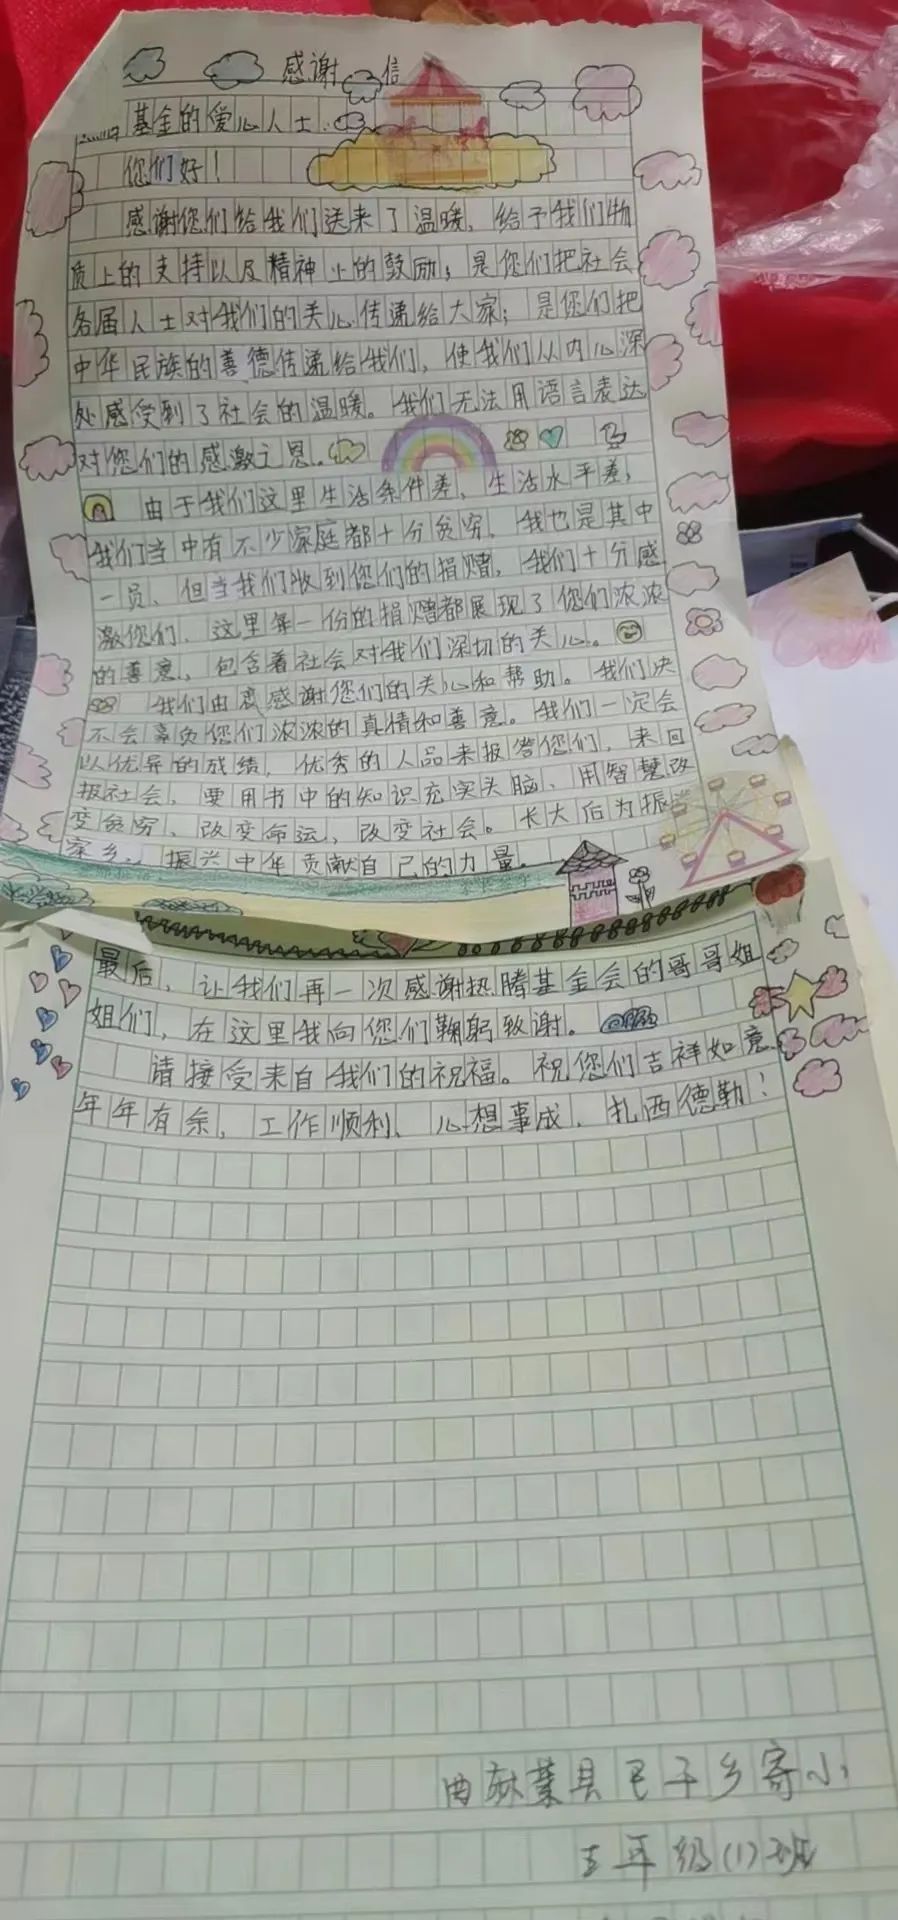 感谢信
基金的爱心人士：
您们好！
感谢您们给我们送来了温暖，给予我们物
质上的支持以及精神上的鼓励；是您们把社会
各届人士对我们的关心传递给大家；是您们把
中华民族的善德传递给我们，使我们从内心深
处感受到了社会的温暖。我们无法用语言表达
对您们的感激之恩。
由于我们这里生活条件差，生活水平差，
我们当中有不少家庭都十分贫穷，我也是其中
一员，但当我们收到您们的捐赠，我们十分感
激您们，这里每一份的捐赠都展现了您们浓浓
的善意，包含着社会对我们深切的关心。
我们由衷感谢您们的关心和帮助。我们决
不会辜负您们浓浓的真情和善意。我们一定会
以优异的成绩，优秀的人品来报答您们，来回
报社会，要用书中的知识充实头脑、用智慧改
变贫穷、改变命运、改变社会。长大后为振兴
家乡、振兴中华贡献自己的力量。
最后，让我们再一次感谢热腾基金会的哥哥姐
姐们，在这里我向您们鞠躬致谢。
请接受来自我们的祝福。祝您们吉祥如意
年年有余，工作顺利、心想事成，扎西德勒！
曲麻莱县巴干乡寄小
五年级(1)班